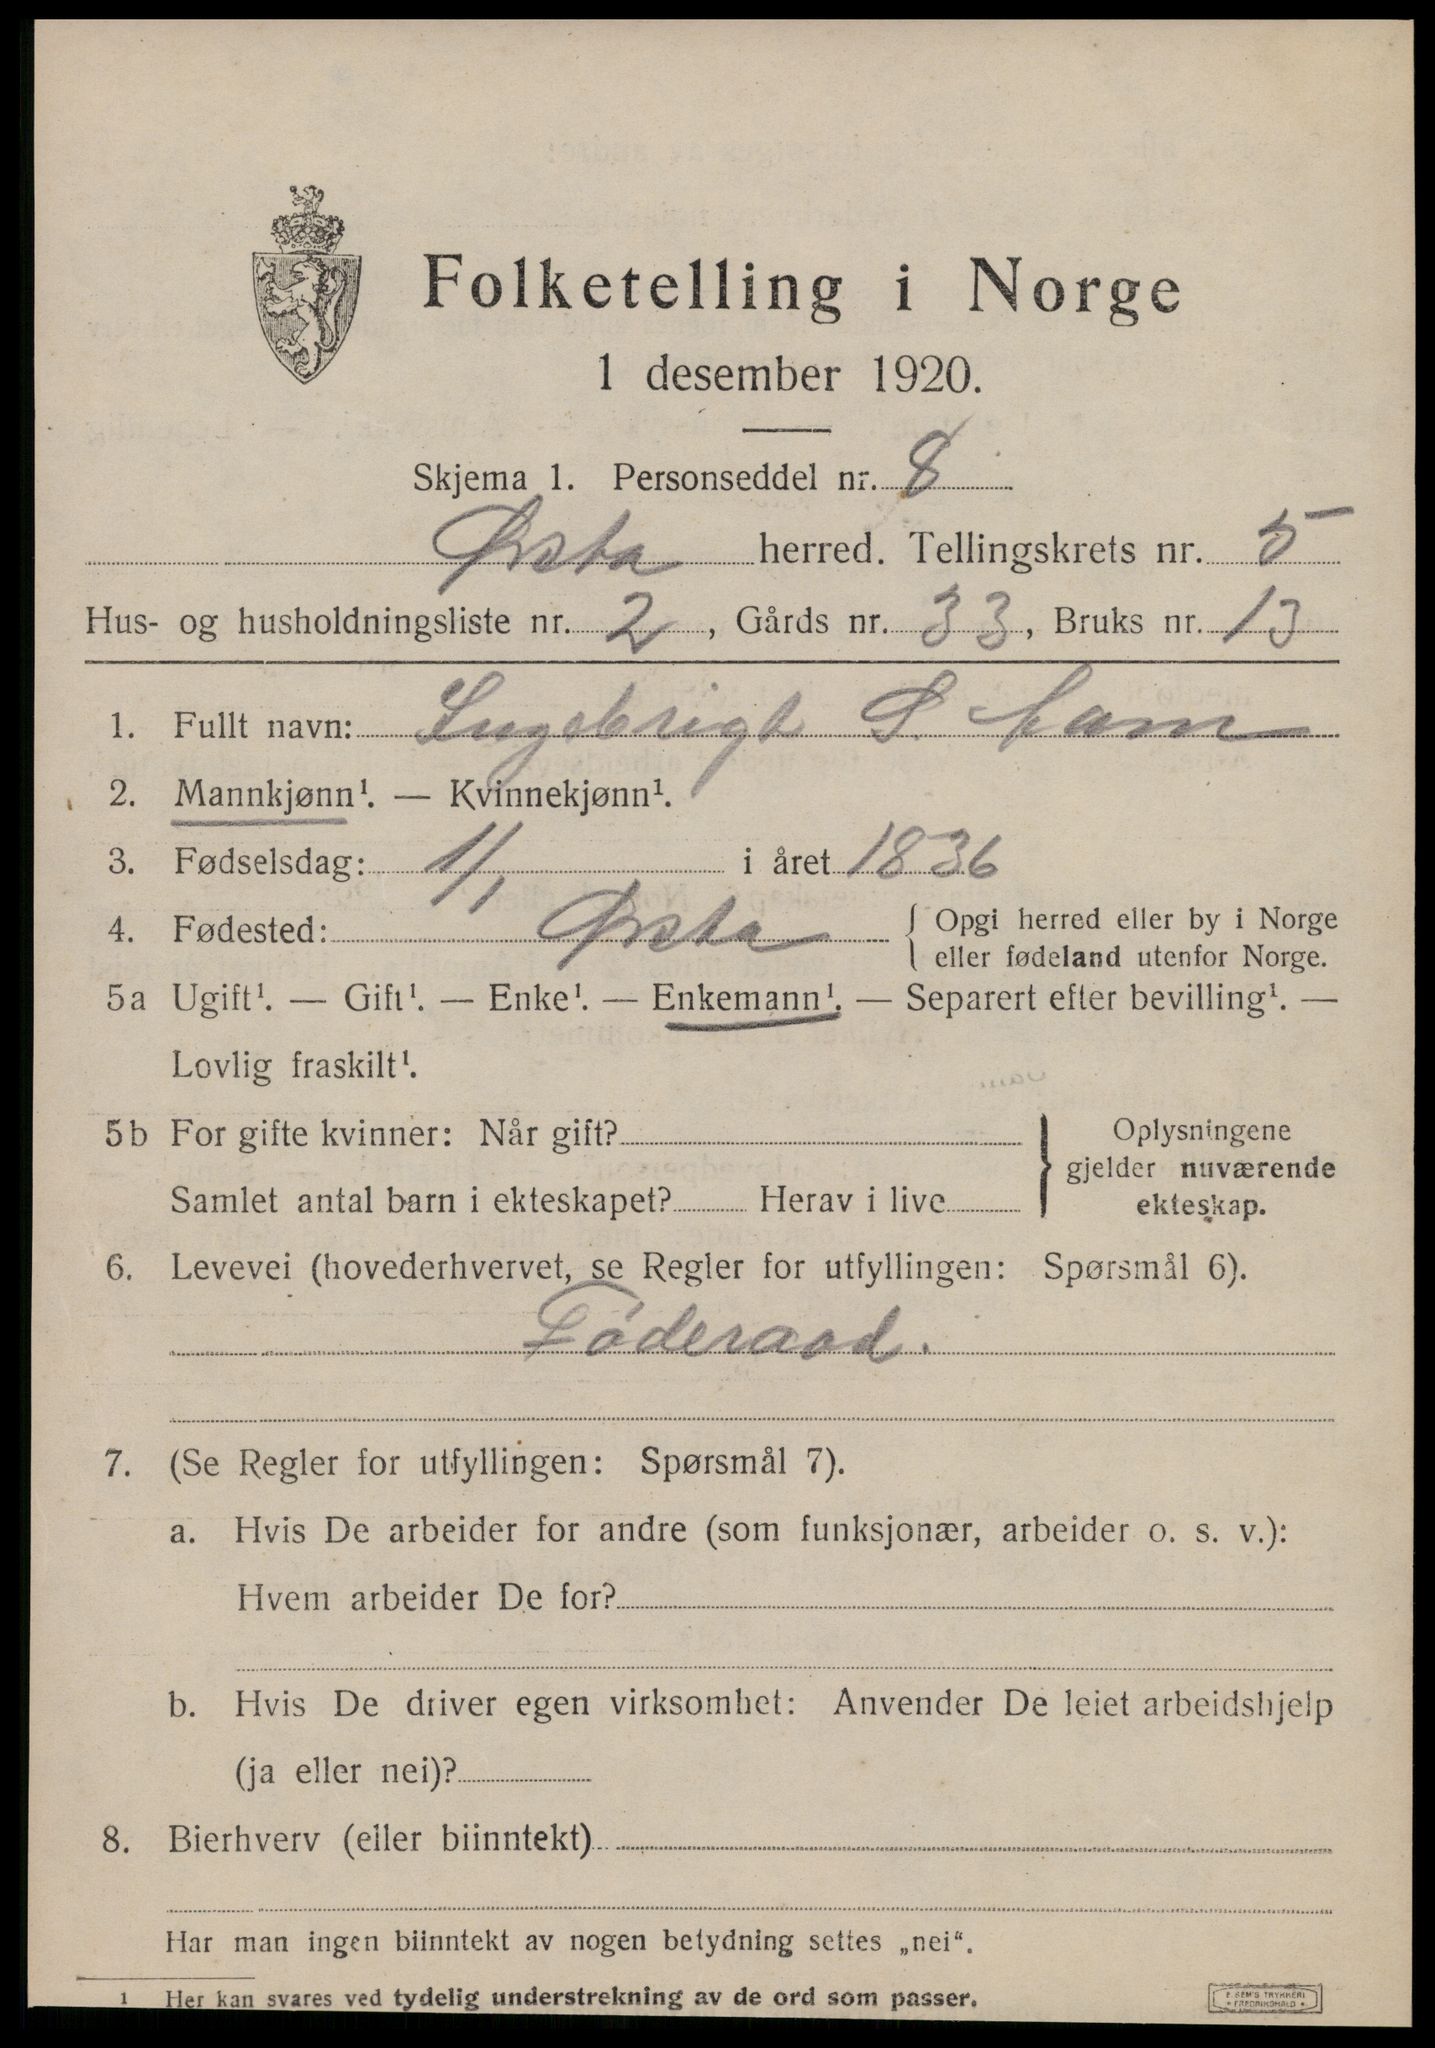 Folketelling i Norge
1 desember 1920.
Skjema 1. Personseddel nr. 8
Ørsta herred. Tellingskrets nr. 5
Hus- og husholdningsliste nr. 2, Gårds nr. 33, Bruks nr. 13
1. Fullt navn: Ingebrigt S.
2. Mannkjønn¹. — Kvinnekjønn¹.
3. Fødselsdag: 1/1 i året 1836
4. Fødested: Ørsta { Opgi herred eller by i Norge
eller fødeland utenfor Norge.
5a Ugift¹. — Gift¹. — Enke¹. — Enkemann¹. — Separert efter bevilling¹. —
Lovlig fraskilt¹.
5b For gifte kvinner: Når gift?
Samlet antal barn i ekteskapet? Herav i live
} Oplysningene
gjelder nuværende
ekteskap.
6. Levevei (hovederhvervet, se Regler for utfyllingen: Spørsmål 6).
Føderaad.
7. (Se Regler for utfyllingen: Spørsmål 7).
a. Hvis De arbeider for andre (som funksjonær, arbeider o. s. v.):
Hvem arbeider De for?
b. Hvis De driver egen virksomhet: Anvender De leiet arbeidshjelp
(ja eller nei)?
8. Bierhverv (eller biinntekt)
Har man ingen biinntekt av nogen betydning settes „nei“.
1 Her kan svares ved tydelig understrekning av de ord som passer.
E. SEM'S TRYKKERI
FREDRIKSHALD